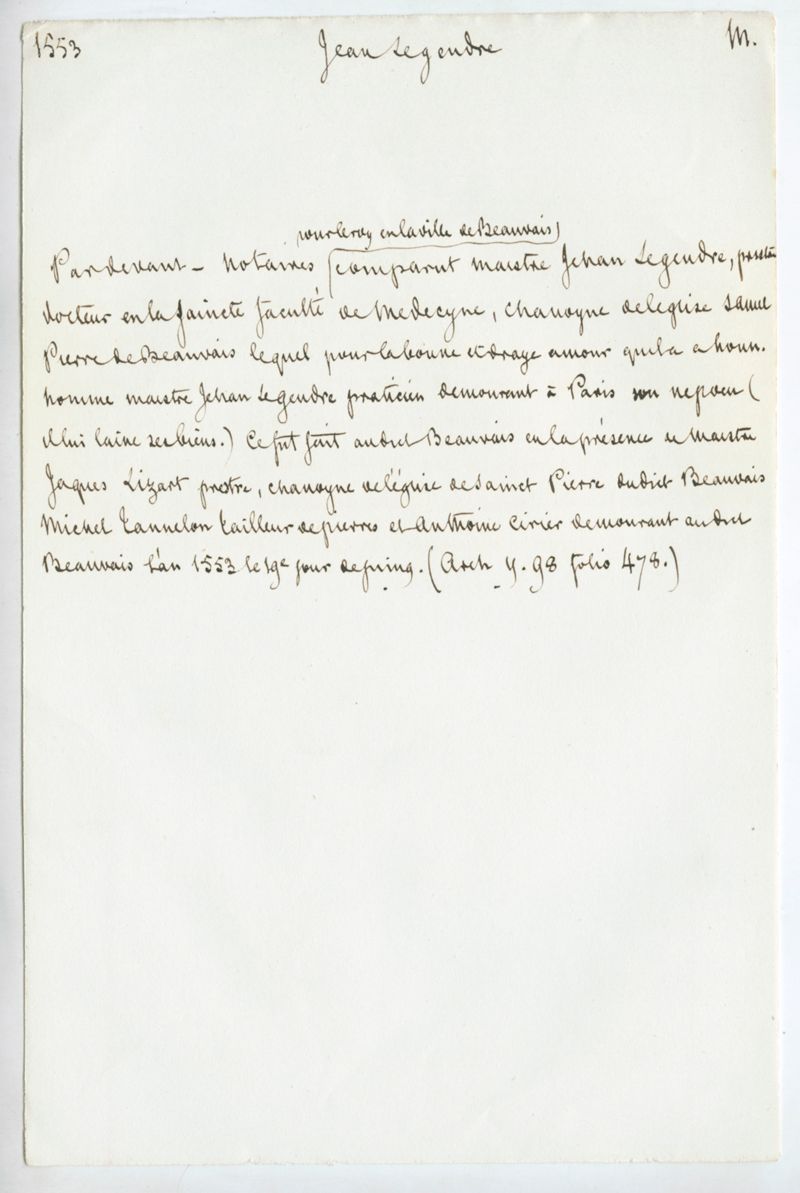 1553 Jean Legendre M.
pour le roy en la ville de Beauvais
Pardevant – notaires comparut maistre Jehan Legendre, prestre
docteur en la saincte faculté de Medecyne, chanoyne de leglise sainct
Pierre de Beauvais lequel pour la bonne et vraye amour quil a a honn.
homme maistre Jehan Legendre praticien demourant à Paris son nepveu (
il lui laisse ses biens.) Ce fut fait audict Beauvais en la présence de Maistre
Jaques Lizart prestre, chanoyne de l'église de Sainct Pierre dudict Beauvais
Michel Tannelon tailleur de pierres et Anthoine Cirier demourant audict
Beauvais l'an 1553 le 19e jour de juing. (Arch Y. 98 folio 478.)